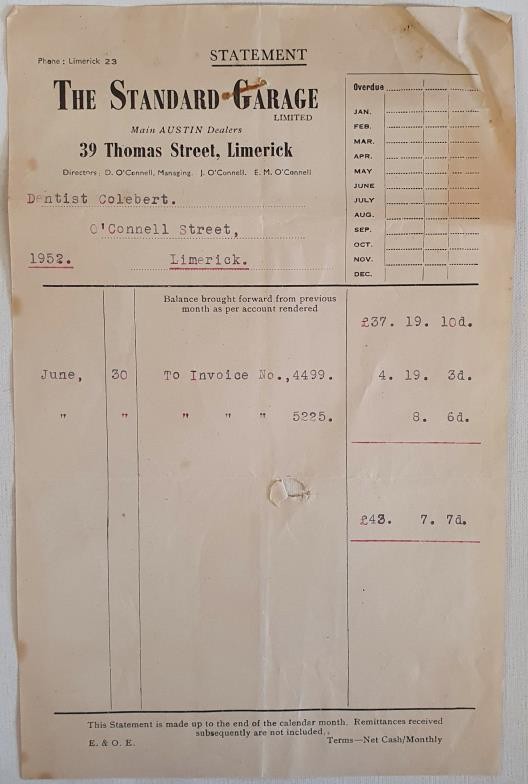 STATEMENT
Phone : Limerick 23
THE STANDARD GARAGE
LIMITED
Main AUSTIN Dealers
39 Thomas Street, Limerick
Directors: D. O'Connell, Managing. J. O'Connell. E. M. O'Connell
Dentist Colebert.
O'Connell Street,
1952. Limerick.
Overdue
JAN.
FEB.
MAR.
APR.
MAY
JUNE
JULY
AUG.
SEP.
OCT.
NOV.
DEC.
Balance brought forward from previous
month as per account rendered
£37. 19. 10d.
June, 30 To Invoice No.,4499. 4. 19. 3d.
" " " " " 5225. 8. 6d.
£43. 7. 7d.
This Statement is made up to the end of the calendar month. Remittances received
subsequently are not included.
E. & O. E. Terms—Net Cash/Monthly